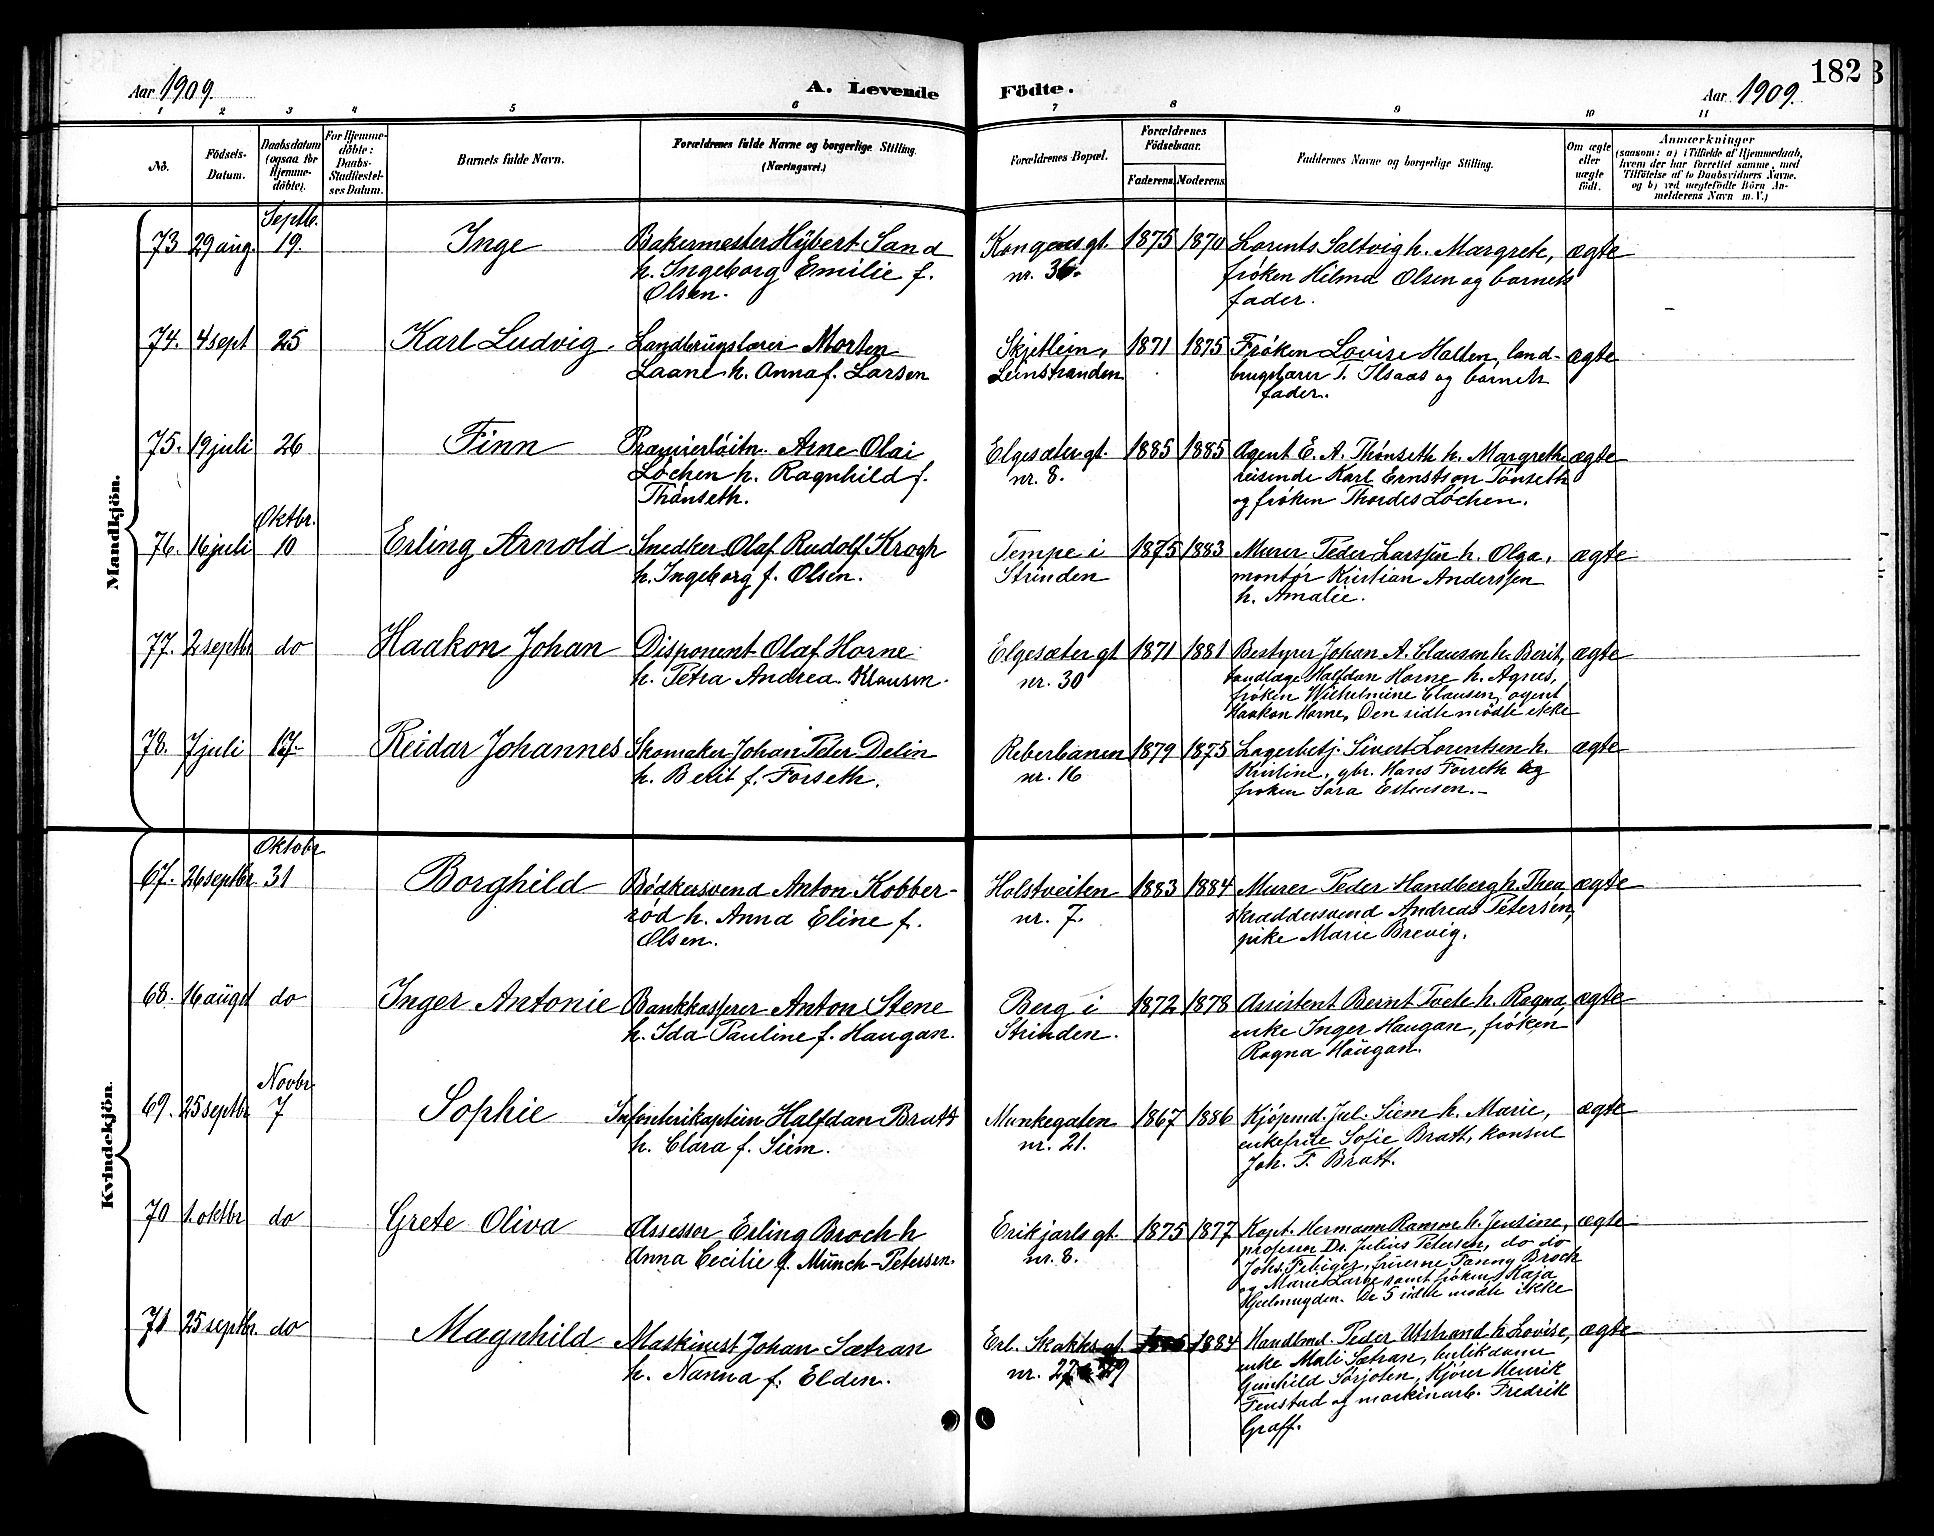 182
Aar 1909.
A. Levende Födte.
Aar 1909.
1 2 3 4 5 6 7 8 9 10 11
No.
Födsels-Datum.
Daabsdatum (ogsaa for Hjemme-döbte).
For Hjemme-döbte: Daabs-Stadfæstel-ses Datum.
Barnets fulde Navn.
Forældrenes fulde Navne og borgerlige Stilling.
(Næringsvei.)
Forældrenes Bopæl.
Forældrenes Födselsaar.
Faderens. Moderens.
Faddernes Navne og borgerlige Stilling.
Om ægte eller uægte födt.
Anmærkninger
(saasom: a) i Tilfælde af Hjemmedaab,
hvem der har forrettet samme, med
Tilföielse af to Daabsvidners Navne.
og b) ved uægtefödte Börn An-
melderens Navn m. V.)
Mandkjön.
Septb.
73 29 aug. 19. Inge Bakermester Hybert Sand Kongens gt. 1875 1870 Lorents Saltvig h. Margrete, ægte
h. Ingeborg Emilie f. nr. 36. frøken Hilma Olsen og barnets
Olsen. fader.
74. 4 sept 25 Karl Ludvig. Landbrugslærer Morten Skjetlein, 1871 1875 Frøken Lovise Halten, land- ægte
Laane h. Anna f. Larsen Leinstranden brugslærer T. Ilsaas og barnets
fader.
75. 19 juli 26 Finn Premierløitn. Arne Olai Elgesæter gt. 1885 1885 Agent E. A. Thønseth h. Margrethe ægte
Løchen h. Ragnhild f. nr. 8. reisende Karl Ernstson Tönseth
Thønseth. og frøken Thordes Løchen.
Oktbr.
76. 16 juli 10 Erling Arnold Snedker Olaf Rudolf Krogh Tempe i 1875 1883 Murer Peder Larssen h. Olga, ægte
h. Ingeborg f. Olsen. Strinden montør Kristian Anderssen
h. Amalie.
77. 2 septbr do Haakon Johan Disponent Olaf Horne Elgesæter gt 1871 1881 Bestyrer Johan A. Clausen h. Berit, ægte
h. Petra Andrea Klausen. nr. 30 tandlæge Halfdan Horne h. Agnes,
frøken Wilhelmine Clausen, agent
Haakon Horne. Den sidte mødte ikke
78. 7 juli 17 Reidar Johannes Skomaker Johan Peter Delin Reberbanen 1879 1875 Lagerbetj. Sivert Lorentsen h. ægte
h. Berit f. Forseth. nr. 16 Kristine, gbr. Hans Forseth og
frøken Sara Estensen.
Kvindekjön.
Oktobr
67. 26 septbr 31 Borghild Bødkersvend Anton Kobber- Holstveiten 1883 1884 Murer Peder Handberg h. Thea, ægte
rød h. Anna Eline f. nr. 7. skræddersvend Andreas Petersen,
Olsen. pike Marie Brevig.
68. 16 augst do Inger Antonie Bankkasserer Anton Stene Berg i 1872 1878 Assistent Bernt Tvete h. Ragna, ægte
h. Ida Pauline f. Haugan. Strinden. enke Inger Haugan, frøken
Ragna Haugan.
Novbr.
69. 25 septbr 7 Sophie Infanterikaptein Halfdan Bratt Munkegaten 1867 1886 Kjøpmd. Jul. Siem h. Marie, ægte
h. Clara f. Siem. nr. 21. enkefrue Sofie Bratt, konsul
Joh. F. Bratt.
70 1. oktbr do Grete Oliva Assessor Erling Broch h Erik jarls gt. 1875 1877 Kapt. Hermann Ramm h. Jensine, ægte
Anna Cecilie f. Münch-Petersen. nr. 8. professor Dr. Julius Petersen, do do
Johs. Fibiger, fruerne Fanny Broch
og Marie samt frøken Kaja
De 5 sidte mødte ikke
71 25 septbr. do Magnhild Maskinist Johan Sætran Erl. Skakks gt. 1884 Handlmd. Peder Utstrand h. Lovise, ægte
h. Nanna f. Elden. nr. 27 enke Mali Sætran, butikdame
Gunhild Sørjoten, Kjører Henrik
Fenstad og maskinarb. Fredrik
Graff.